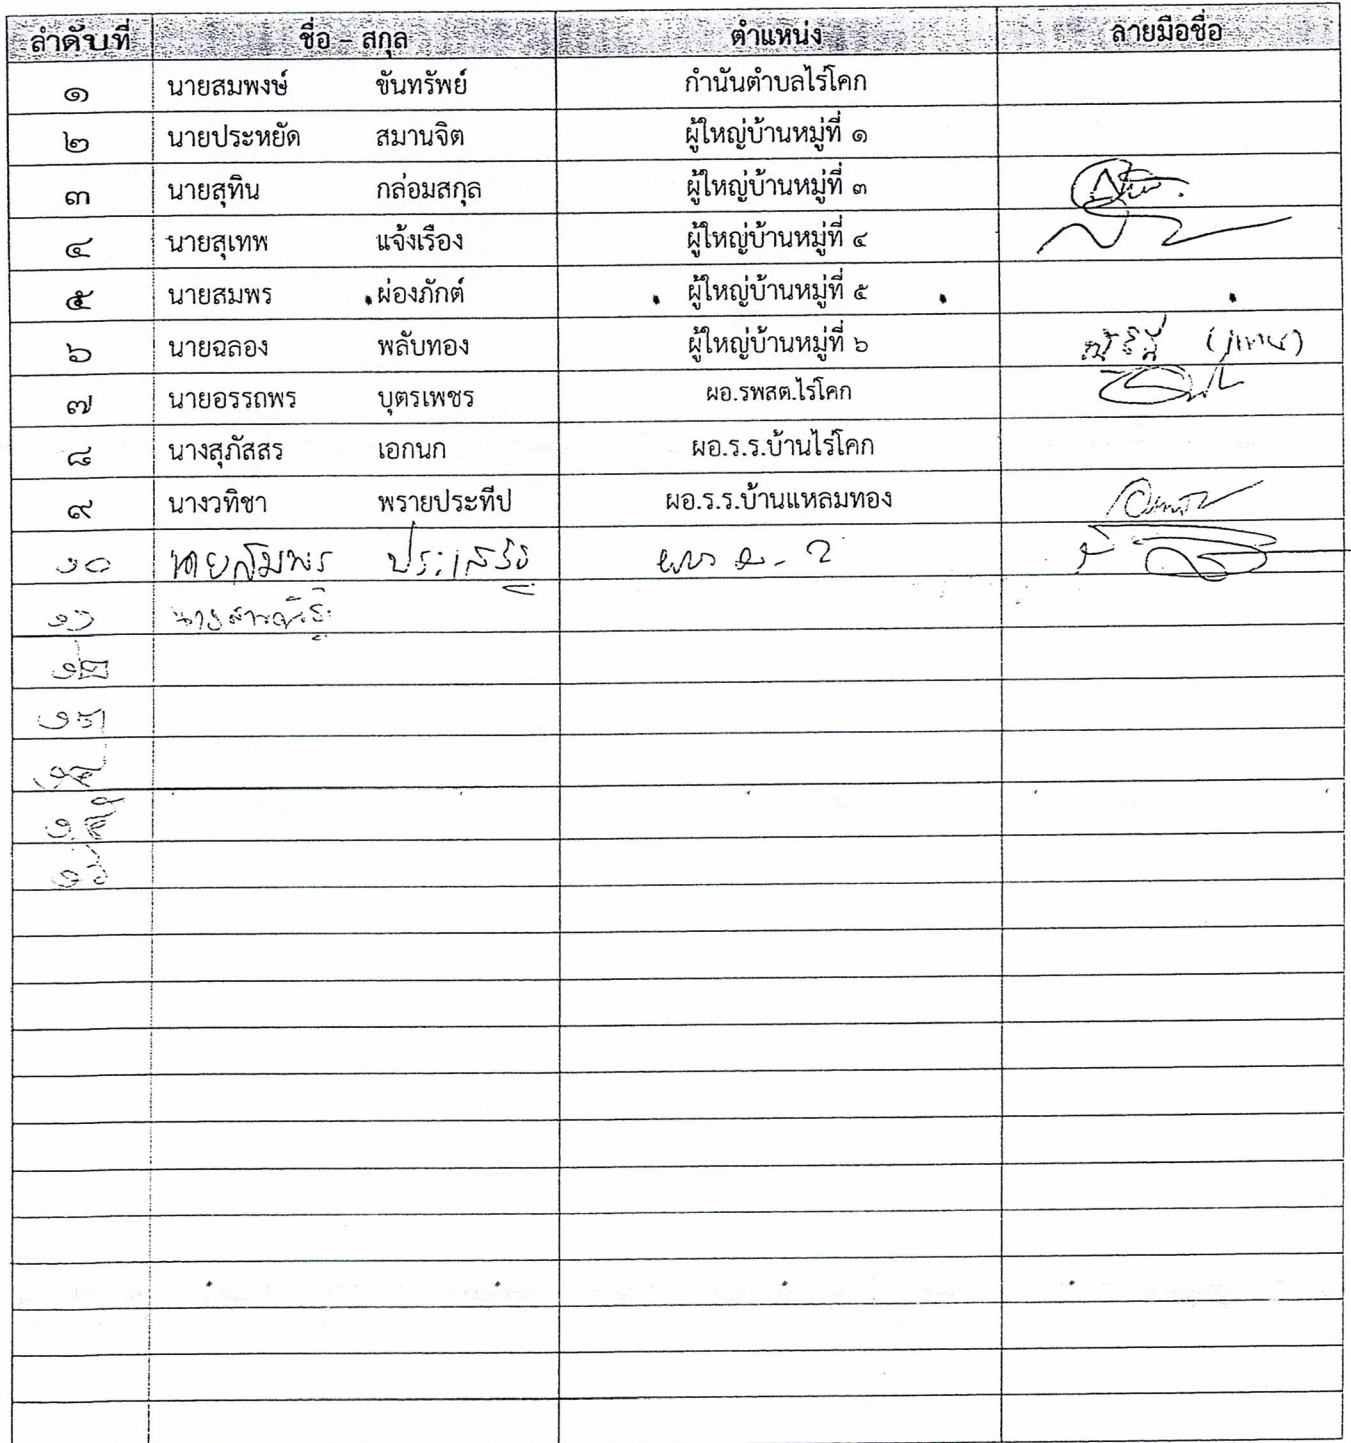 ลำดับที่ ชื่อ – สกุล ตำแหน่ง ลายมือชื่อ
๑ นายสมพงษ์ ขันทรัพย์ กำนันตำบลไร่โคก
๒ นายประหยัด สมานจิต ผู้ใหญ่บ้านหมู่ที่ ๑
๓ นายสุทิน กล่อมสกุล ผู้ใหญ่บ้านหมู่ที่ ๓
๔ นายสุเทพ แจ้งเรือง ผู้ใหญ่บ้านหมู่ที่ ๔
๕ นายสมพร ผ่องภักต์ ผู้ใหญ่บ้านหมู่ที่ ๕
๖ นายฉลอง พลับทอง ผู้ใหญ่บ้านหมู่ที่ ๖ (แทน)
๗ นายอรรถพร บุตรเพชร ผอ.รพสต.ไร่โคก
๘ นางสุภัสสร เอกนก ผอ.ร.ร.บ้านไร่โคก
๙ นางวทิชา พรายประทีป ผอ.ร.ร.บ้านแหลมทอง
๑๐ นายสมพร
๑๑
๑๒
๑๓
๑๔
๑๕
๑๖